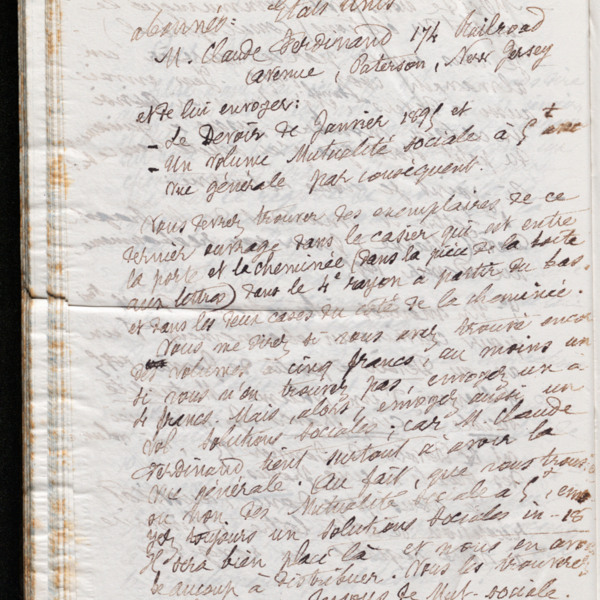 États Unis
abonnés:
M. Claude Ferdinand 174 Railroad
avenue, Paterson, New Jersey
et de lui envoyer:
- Le Devoir de Janvier 1895 et
- Un volume Mutualité sociale à 5 f
vue générale par conséquent.
Vous devez trouver des exemplaires de ce
dernier ouvrage dans le casier qui est entre
la porte et la cheminée (dans la pièce de la boite
aux lettres) dans le 4e rayon à partir du bas
et dans les deux cases du côté de la cheminée.
Vous me direz si vous avez trouvé encore
volumes à cinq francs, au moins un
si vous n'en trouvez pas, envoyez un à
4 francs. Mais, alors, envoyez aussi un
vol. solutions sociales; car M. Claude
Ferdinand tient surtout à avoir la
vue générale. Au fait, que vous trouv
ou non des Mutualité sociale à 5 f,
toujours un solutions sociales in-18
Il sera bien placé là et nous en avons
beaucoup à distribuer. Vous les trouverez
de Mut. sociale.